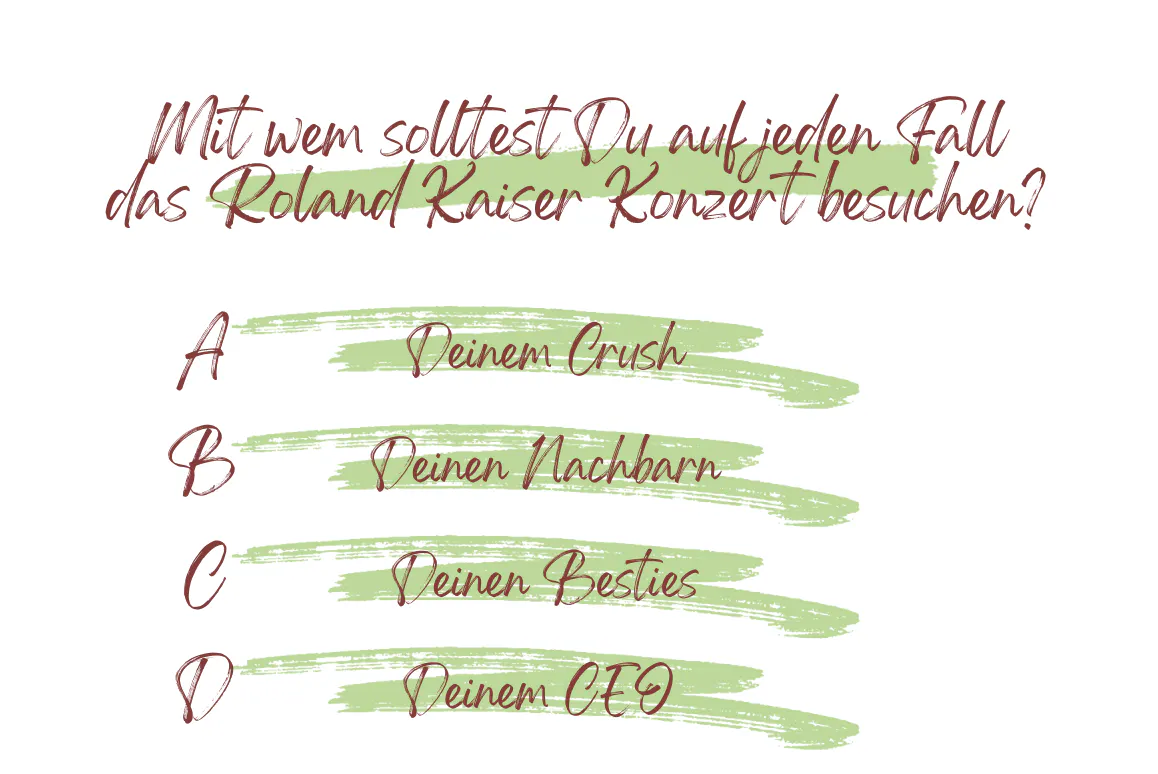 Mit wem solltest Du auf jeden Fall
das Roland Kaiser Konzert besuchen?
A Deinem Crush
B Deinen Nachbarn
C Deinen Besties
D Deinem CEO